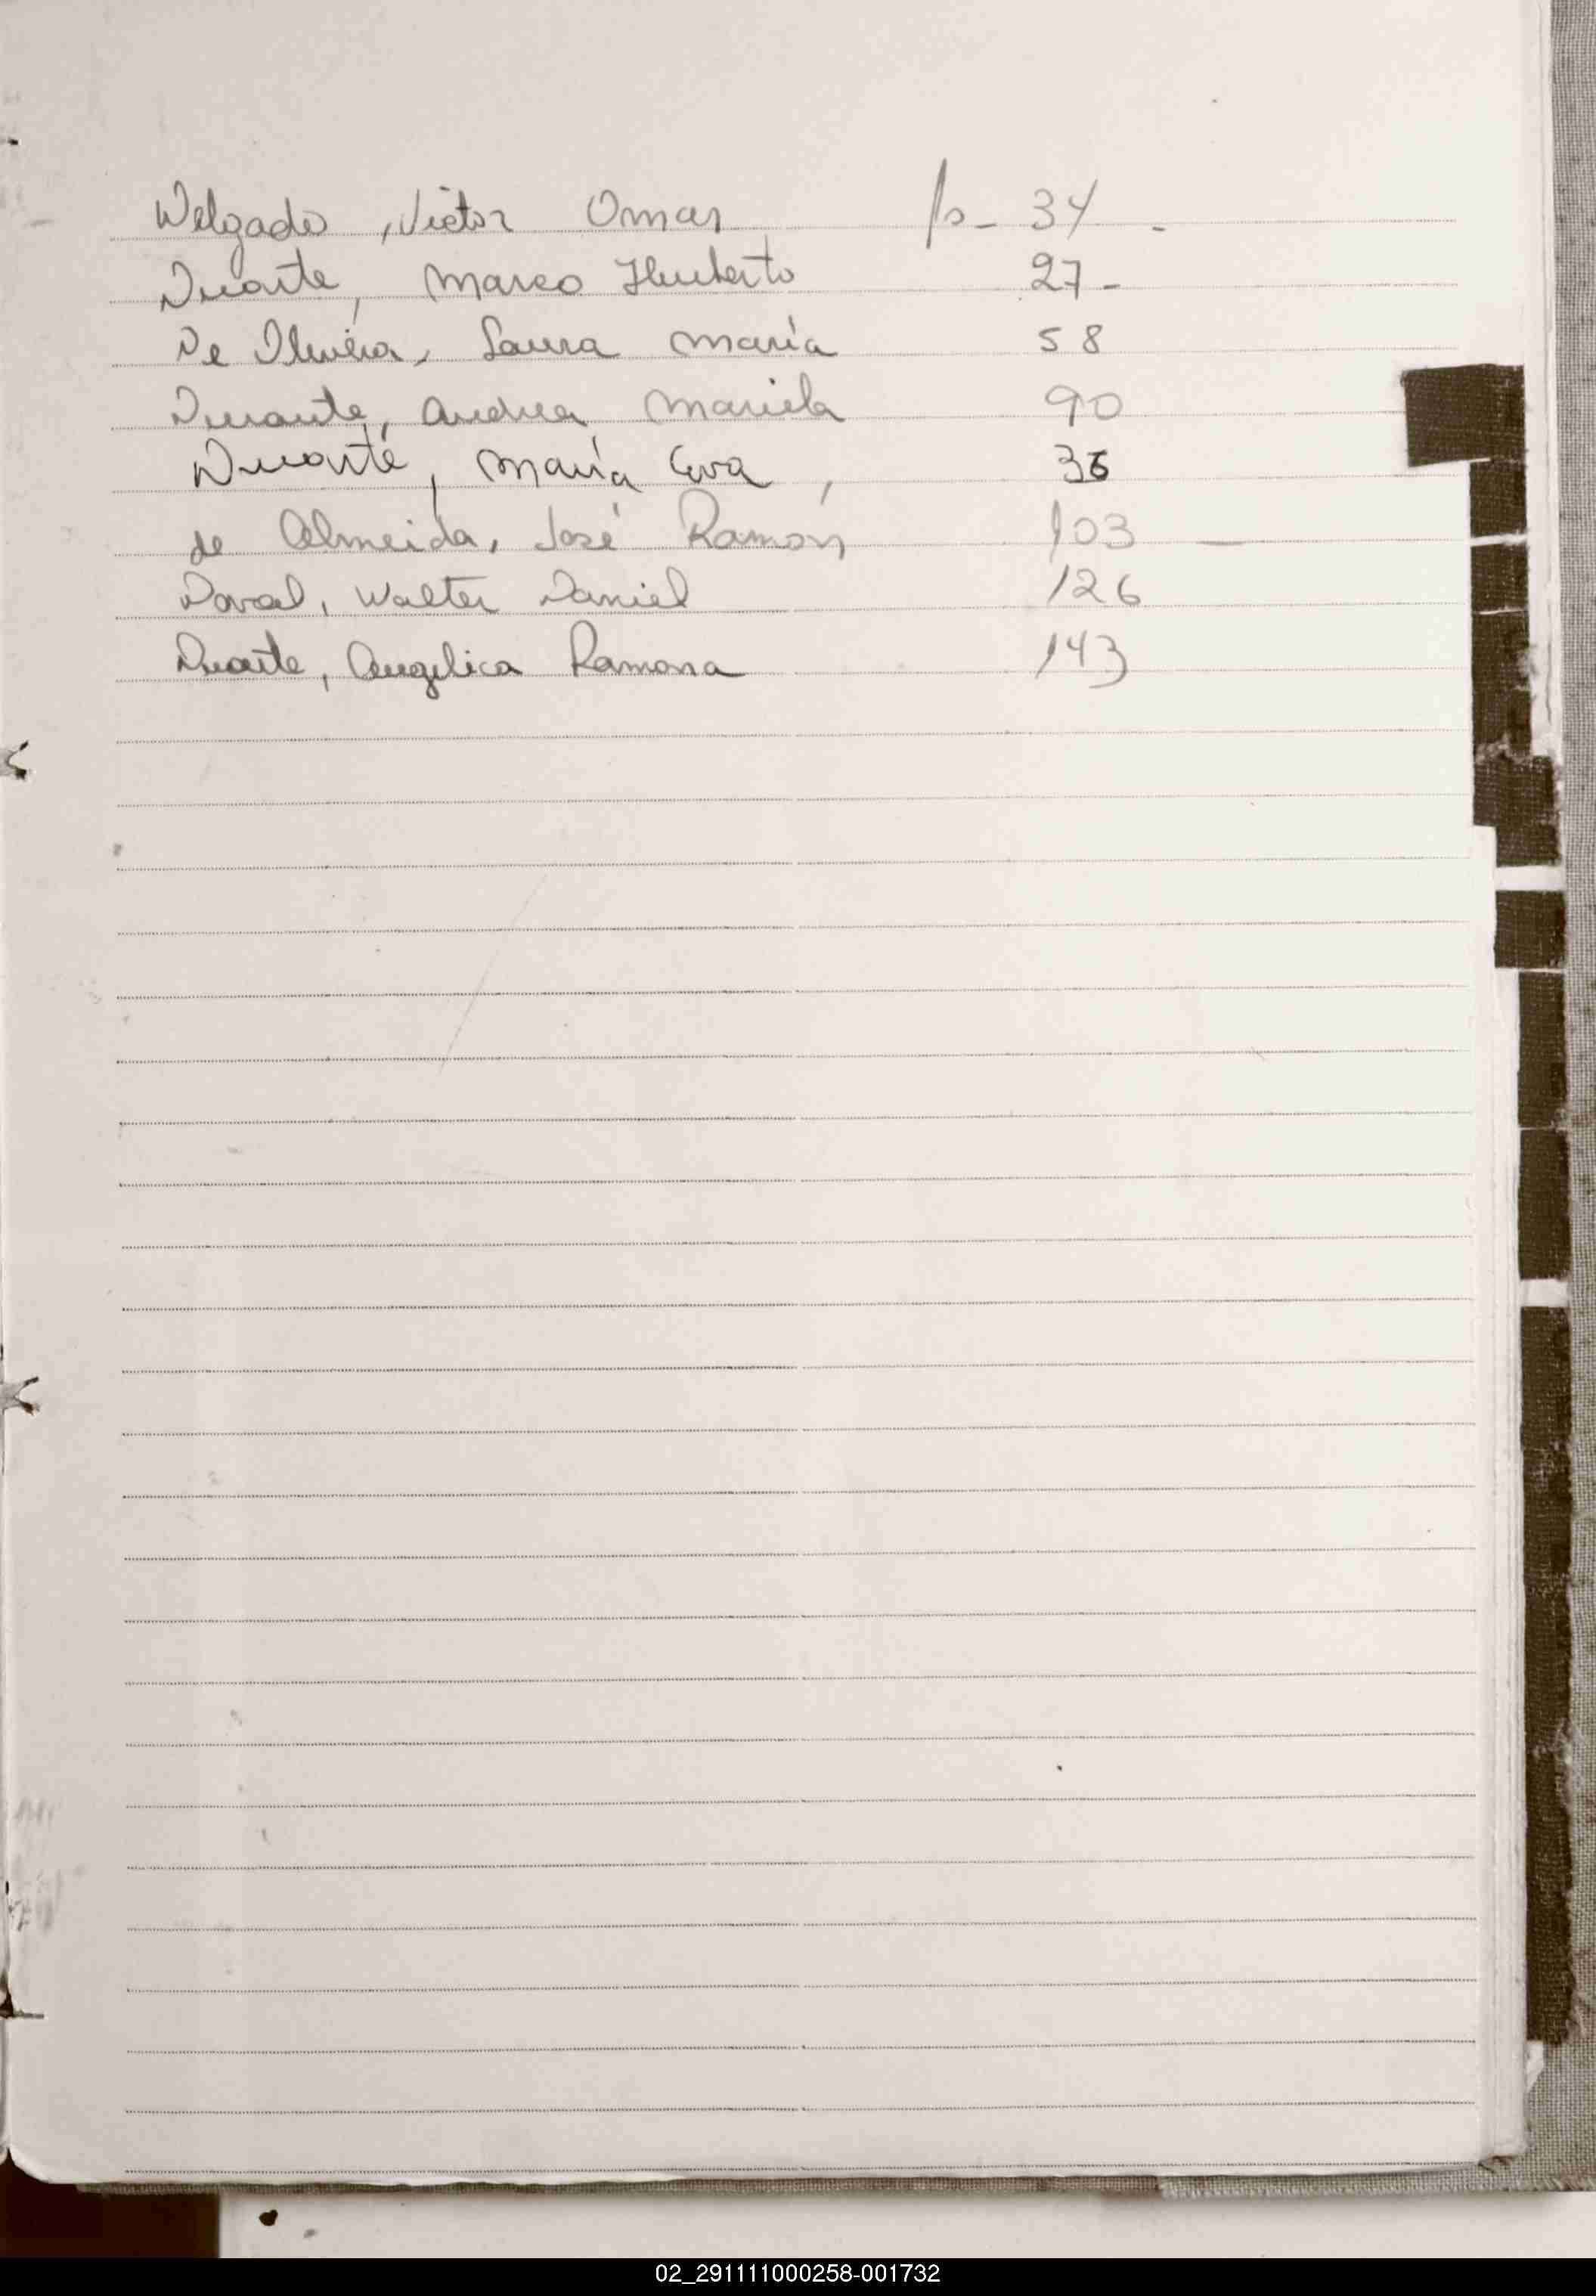 Delgado, Victor Omar fo- 34-
Duarte, Marco Humberto 27-
De Oliveira, Laura María 58
Duarte, Andrea Mariela 90
Duarte, María Eva, 36
de Almeida, José Ramón 103 —
Doval, Walter Daniel 126
Duarte, Angelica Ramona 143
02_291111000258-001732